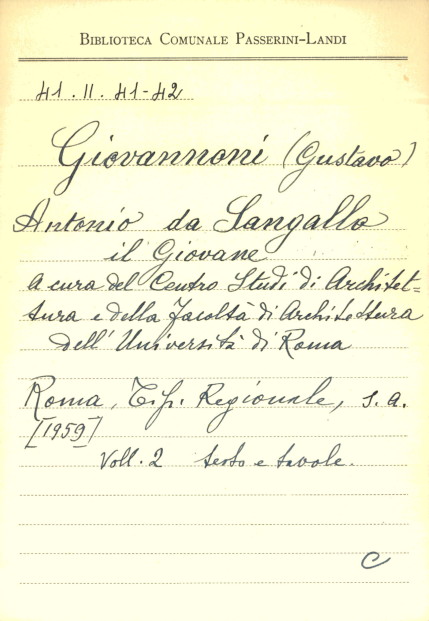 BIBLIOTECA COMUNALE PASSERINI-LANDI
41.II.41-42
Giovannoni (Gustavo)
Antonio da Sangallo
il Giovane
A cura del Centro Studi di Architet=
tura e della Facoltà di Architettura
dell'Università di Roma
Roma, Tip. Regionale, s.a.
[1959]
Voll. 2 testo e tavole.
C